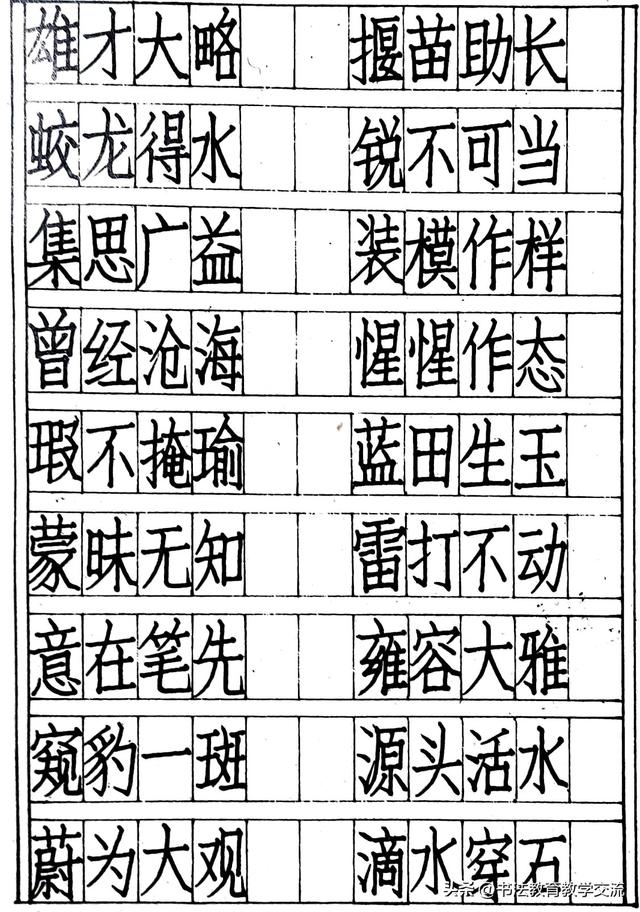 雄才大略 揠苗助长
蛟龙得水 锐不可当
集思广益 装模作样
曾经沧海 惺惺作态
瑕不掩瑜 蓝田生玉
蒙昧无知 雷打不动
意在笔先 雍容大雅
窥豹一斑 源头活水
蔚为大观 滴水穿石
头条@书法教育教学交流